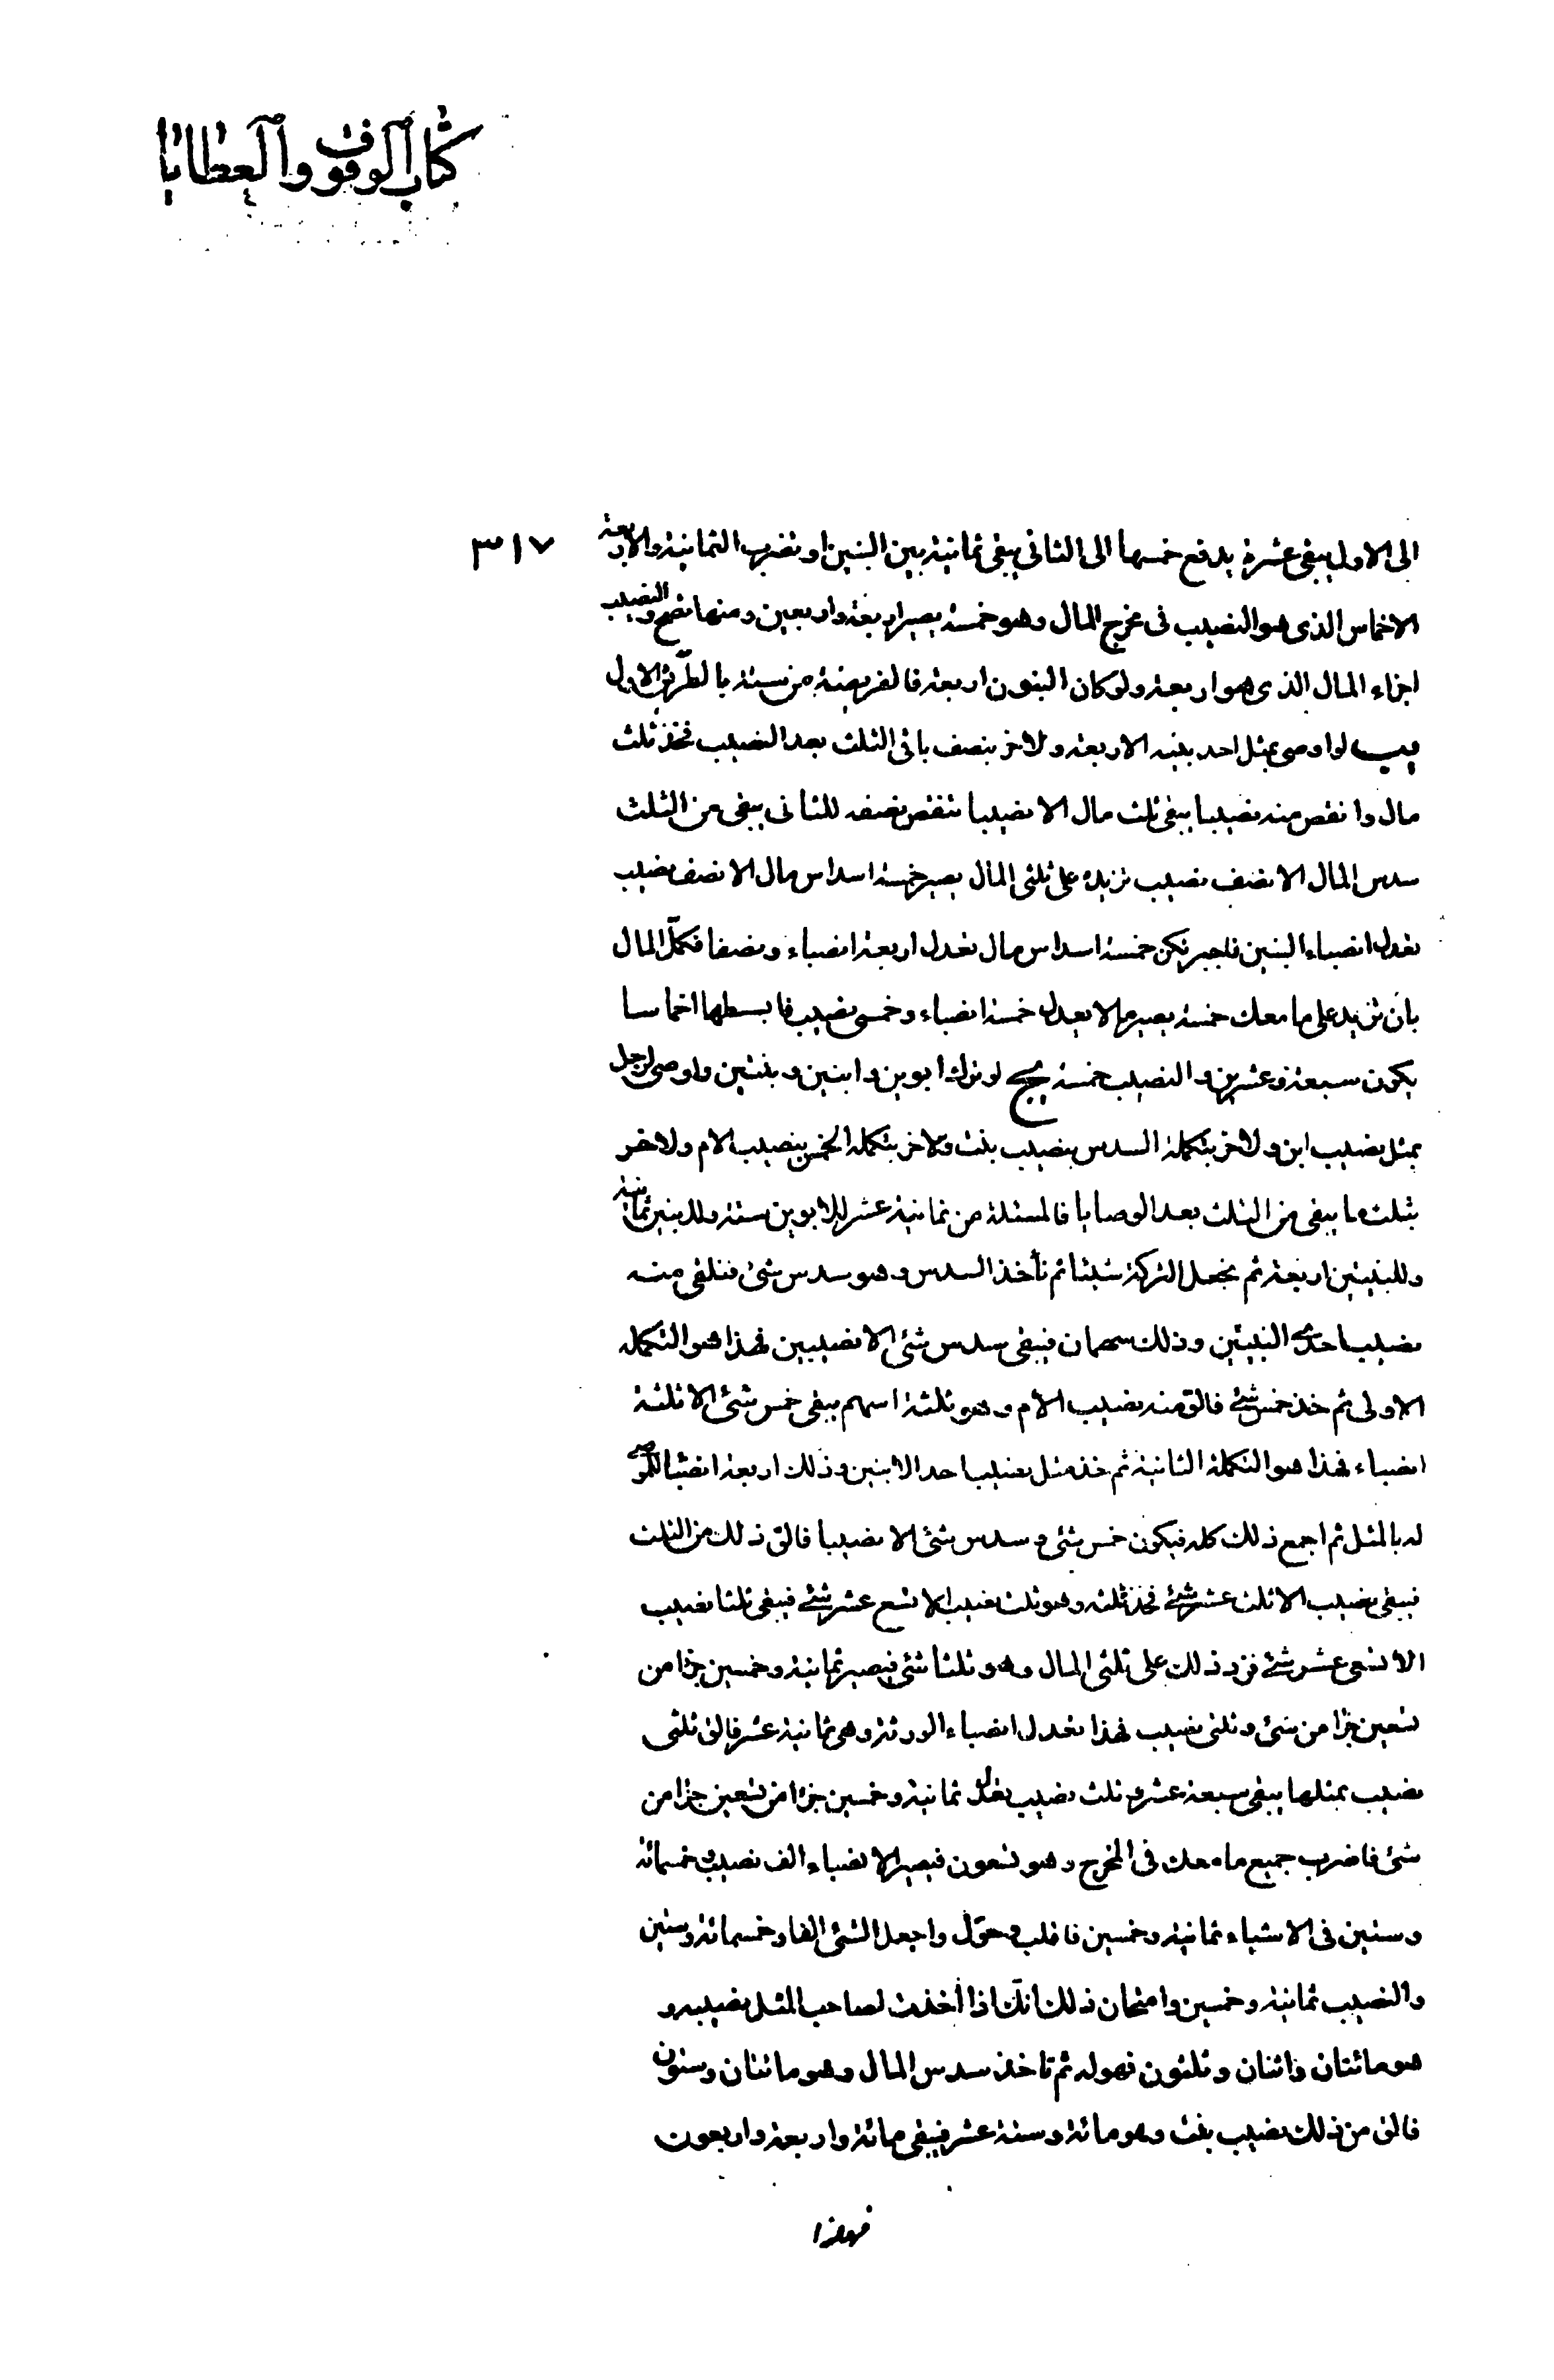 كتاب الوقوف والعطايا
٣١٧
الى الاول يبقى عشرة يدفع خمسها الى الثانى يبقى ثمانية بين البنين او تضرب الثمانية والاربعة
الاخماس الذى هو النصيب فى مخرج المال وهو خمسة يصير اربعة واربعين ومنها تصح والنصيب
اجزاء المال الذى هو اربعة ولو كان البنون اربعة فالفريضة من ستة بالطريق الاول
يب لو اوصى بمثل احد بنيه الاربعة ولاخر بنصف باقى الثلث بعد النصيب فخذ ثلث
مال وانقص منه نصيبا يبقى ثلث مال الا نصيبا تنقص نصفه للثانى يبقى من الثلث
سدس المال الا نصف نصيب تزيده على ثلثى المال يصير خمسة اسداس مال الا نصف نصيب
تعدل انصباء البنين فاجبر تكن خمسة اسداس مال تعدل اربعة انصباء ونصفا فكمل المال
بان تزيد على ما معك خمسة يصير مالا يعدل خمسة انصباء وخمسى نصيب فابسطها اخماسا
يكون سبعة وعشرين والنصيب خمسة يج لو ترك ابوين وابنين وبنتين واوصى لرجل
بمثل نصيب ابن ولاخر بتكملة السدس بنصيب بنت ولاخر بتكملة الخمس بنصيب الام ولاخر
بثلث ما يبقى من الثلث بعد الوصايا فالمسئلة من ثمانية عشر للابوين ستة وللابنين ثمانية
وللبنتين اربعة ثم نجعل التركة شيئا ثم نأخذ السدس وهو سدس شئ فنلقى منه
نصيب احدى البنتين وذلك سهمان فيبقى سدس شئ الا نصيبين فهذا هو التكملة
الاولى ثم خذ خمس شئ فالق منه نصيب الام وهو ثلثة اسهم يبقى خمس شئ الا ثلثة
انصباء فهذا هو التكملة الثانية ثم خذ مثل نصيب احد الابنين وذلك اربعة انصباء للموصى
له بالمثل ثم اجمع ذلك كله فيكون خمس شئ وسدس شئ الا نصيبا فالق ذلك من الثلث
فيبقى نصيب الا ثلث عشر شئ فخذ ثلثه وهو ثلث نصيب الا تسع عشر شئ فيبقى ثلثا نصيب
الا تسعى عشر شئ فزد ذلك على ثلثى المال وهو ثلثا شئ فيصير ثمانية وخمسين جزا من
تسعين جزا من شئ وثلثى نصيب فهذا تعدل انصباء الورثة وهى ثمانية عشر فالق ثلثى
نصيب بمثلها يبقى سبعة عشر وثلث نصيب يعدل ثمانية وخمسين جزا من تسعين جزا من
شئ فاضرب جميع ما معك فى المخرج وهو تسعون فيصير الانصباء الف نصيب وخمسمائة
وستين فى الاشياء ثمانية وخمسين فاقلب وحول واجعل الشئ الفا وخمسمائة وستين
والنصيب ثمانية وخمسين وامتحان ذلك انك اذا أخذت لصاحب المثل نصيبه و
هو مائتان واثنان وثلثون فهو له ثم تاخذ سدس المال وهو مائتان وستون
فالق من ذلك نصيب بنت وهو مائة وستة عشر فيبقى مائة واربعة واربعون
فهذا